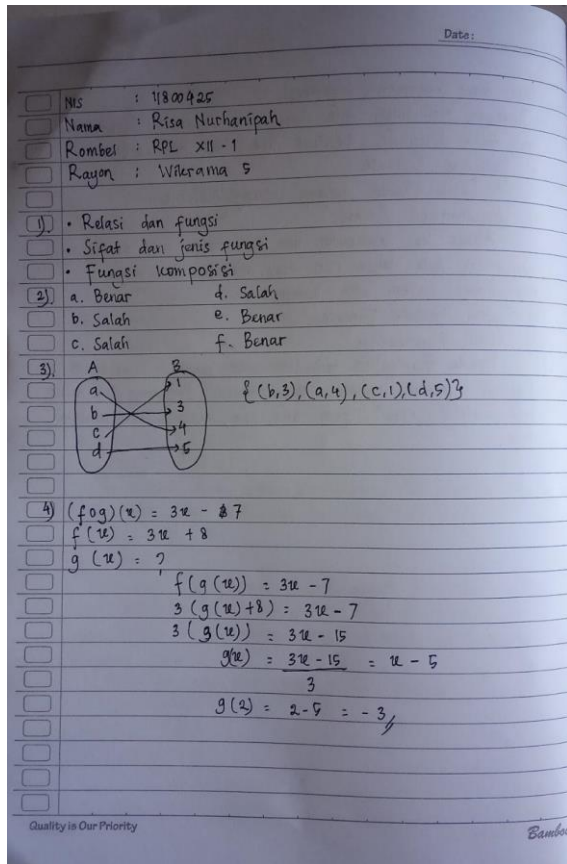 Date:
NIS : 11800425
Nama : Risa Nurhanipah
Rombel : RPL XII - 1
Rayon : Wikrama 5
1). • Relasi dan fungsi
• Sifat dan jenis fungsi
• Fungsi komposisi
2). a. Benar d. Salah
b. Salah e. Benar
c. Salah f. Benar
3). A B
a 1 {(b,3), (a,4), (c,1), (d,5)}
b 3
c 4
d 5
4) (fog)(x) = 3x - 7
f(x) = 3x + 8
g(x) = ?
f(g(x)) = 3x - 7
3(g(x)+8) = 3x - 7
3(g(x)) = 3x - 15
g(x) = 3x - 15 = x - 5
3
g(2) = 2-5 = -3
Quality is Our Priority